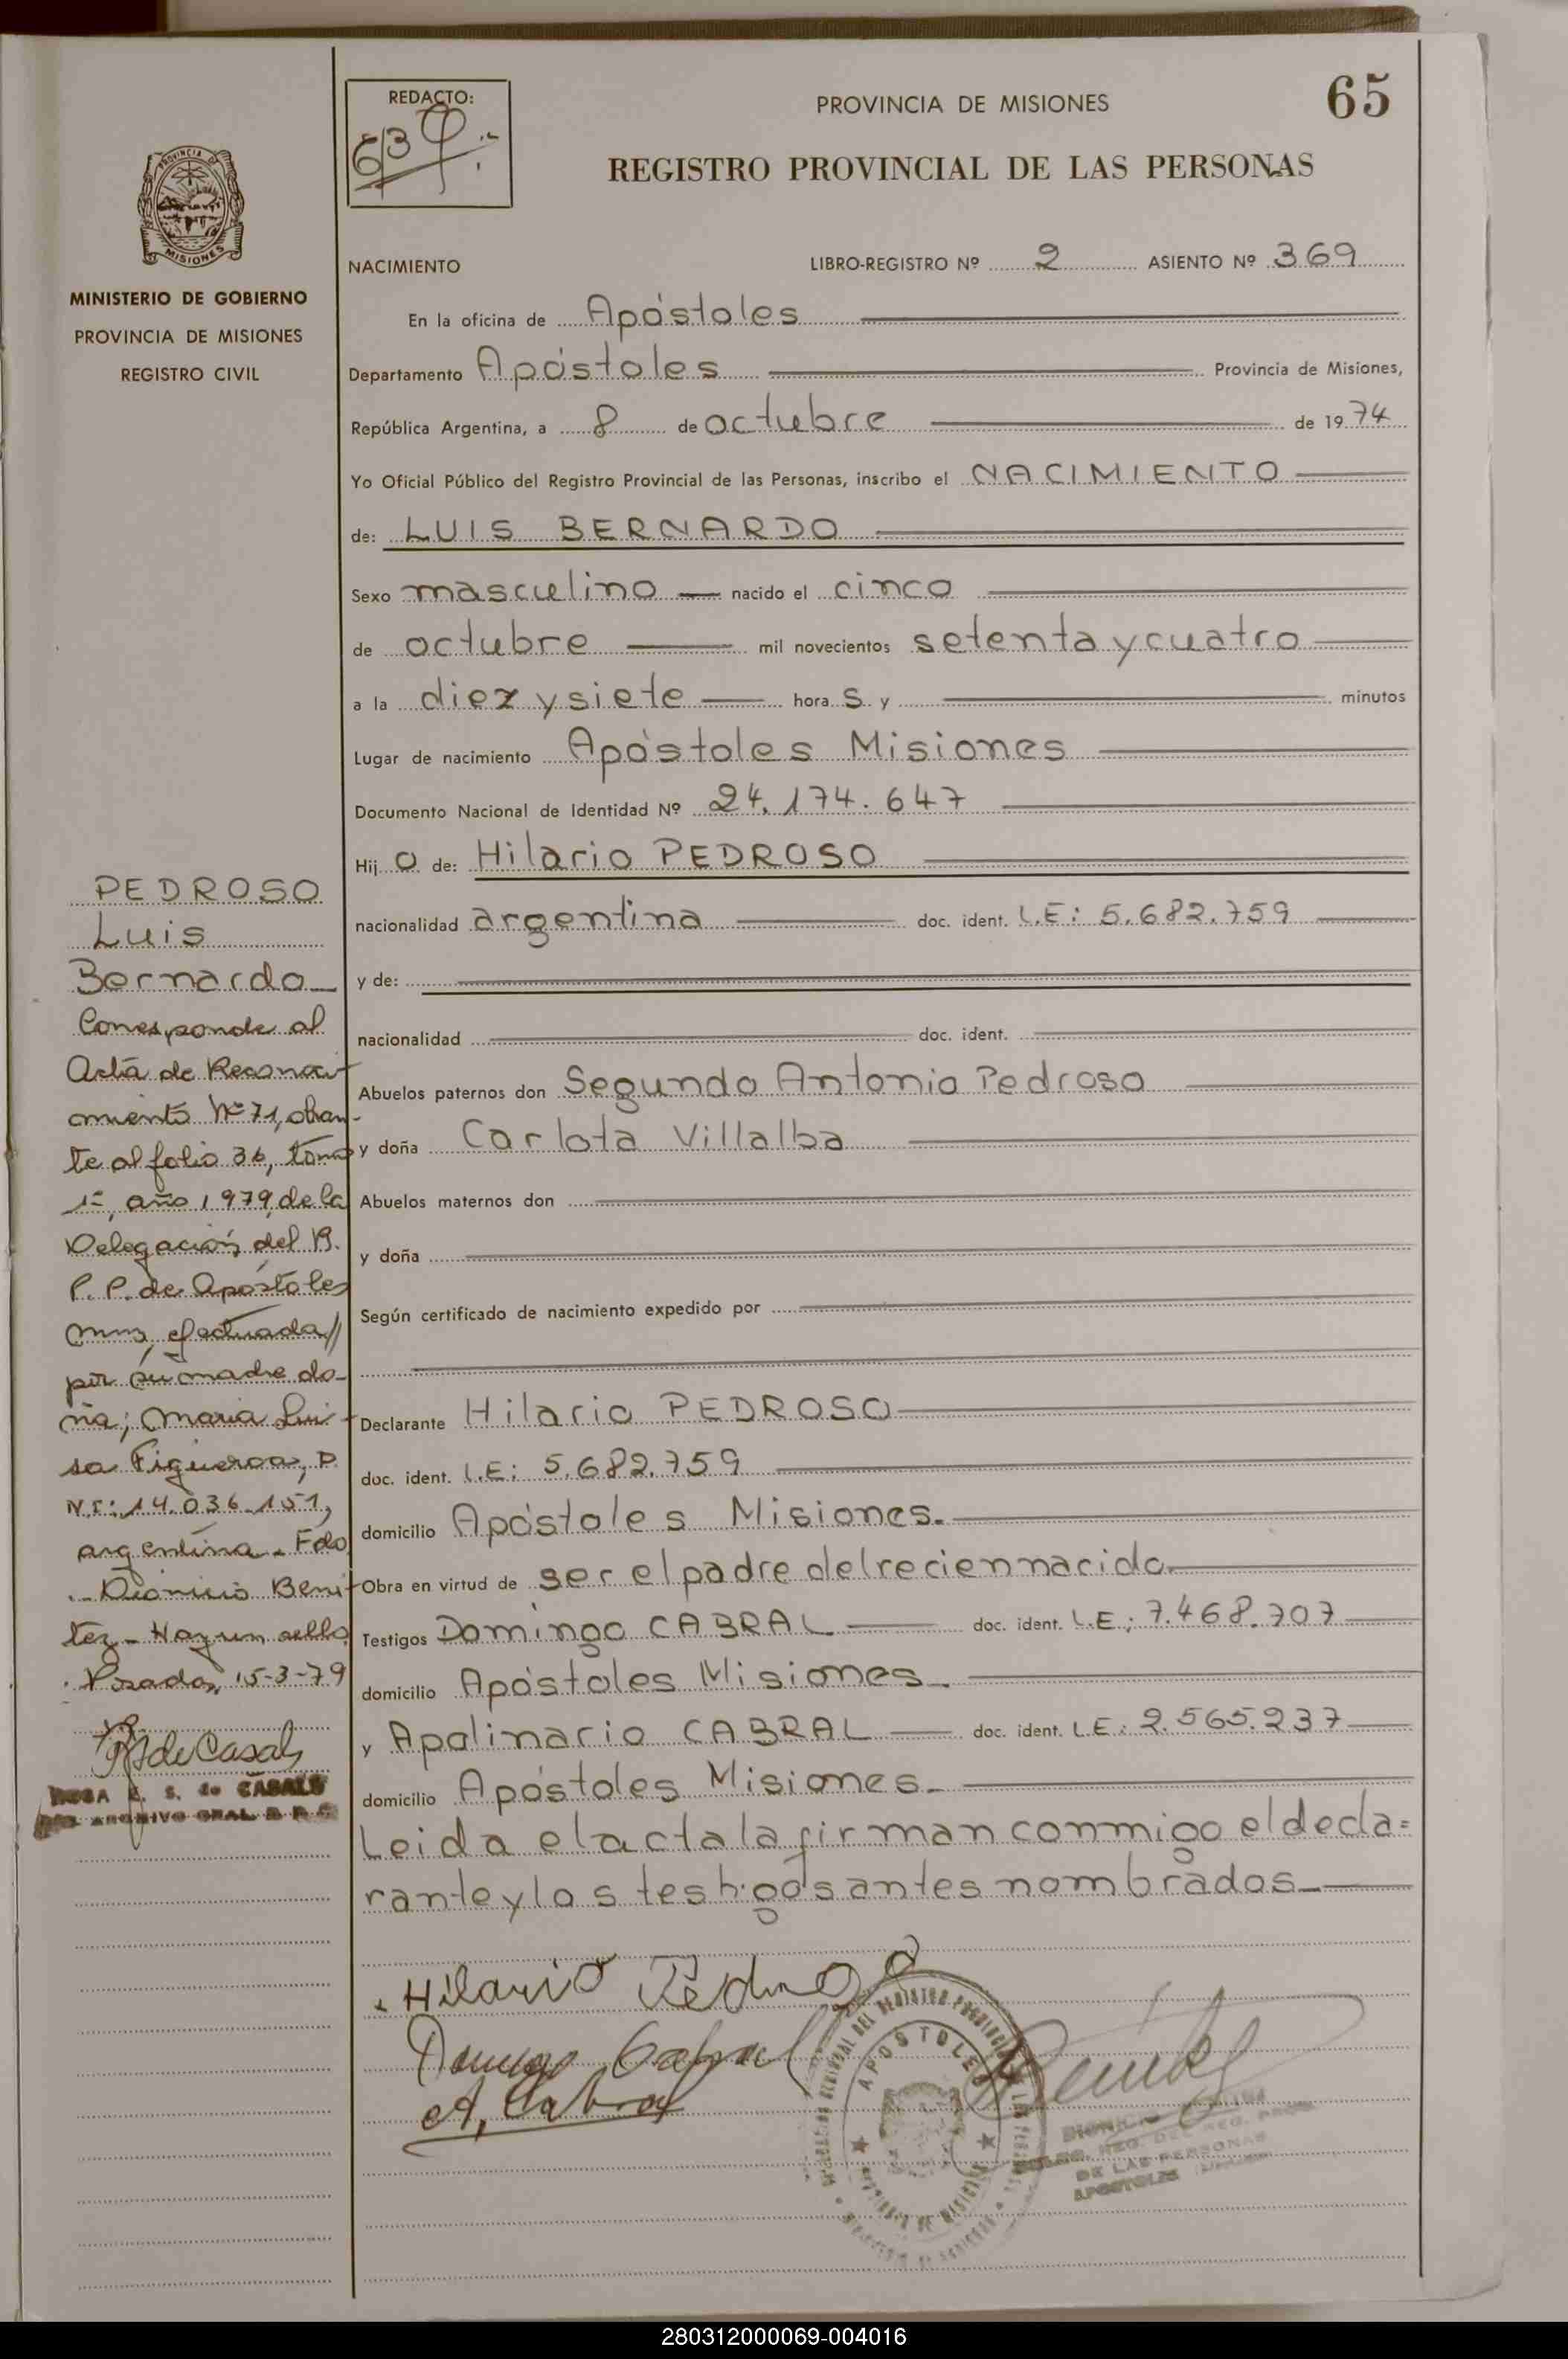 65
REDACTO:
PROVINCIA DE MISIONES
REGISTRO PROVINCIAL DE LAS PERSONAS
PROVINCIA DE
MISIONES
MINISTERIO DE GOBIERNO
PROVINCIA DE MISIONES
REGISTRO CIVIL
NACIMIENTO LIBRO-REGISTRO Nº 2 ASIENTO Nº 369
En la oficina de Apóstoles
Departamento Apóstoles Provincia de Misiones,
República Argentina, a 8 de octubre de 1974
Yo Oficial Público del Registro Provincial de las Personas, inscribo el NACIMIENTO
de: LUIS BERNARDO
Sexo masculino nacido el cinco
de octubre mil novecientos setenta y cuatro
a la diez y siete horas y minutos
Lugar de nacimiento Apóstoles Misiones
Documento Nacional de Identidad Nº 24.174.647
Hijo de: Hilario PEDROSO
nacionalidad argentina doc. ident. L.E: 5.682.759
y de:
nacionalidad doc. ident.
Abuelos paternos don Segundo Antonio Pedroso
y doña Carlota Villalba
Abuelos maternos don
y doña
Según certificado de nacimiento expedido por
Declarante Hilario PEDROSO
doc. ident. L.E: 5.682.759
domicilio Apóstoles Misiones.
Obra en virtud de ser el padre del recien nacido
Testigos Domingo CABRAL doc. ident. L.E: 7.468.707
domicilio Apóstoles Misiones.
y Apolinario CABRAL doc. ident. L.E: 2.565.237
domicilio Apóstoles Misiones.
Leida el acta la firman conmigo el decla=
rante y los testigos antes nombrados
PEDROSO
Luis
Bernardo
Corresponde al
Acta de Reconoci-
miento Nº 71, obran-
te al folio 36, tomo
1º, año 1979, de la
Delegación del R.
P. P. de Apóstoles
Mnes, efectuada//
por su madre do-
ña; Maria Lui-
sa Figueroa, D.
N.I: 14.036.151,
argentina - Fdo
Dionicio Beni-
tez - Hay un sello
Posadas, 15-3-79
R de Casals
ROSA E. S. de CASALS
ARCHIVO GRAL R. P. C.
Hilario Pedroso
Domingo Cabral
A. Cabral
APOSTOLES
PROVINCIA DE MISIONES
REG. DEL REG. PROV.
DE LAS PERSONAS
APOSTOLES
280312000069-004016